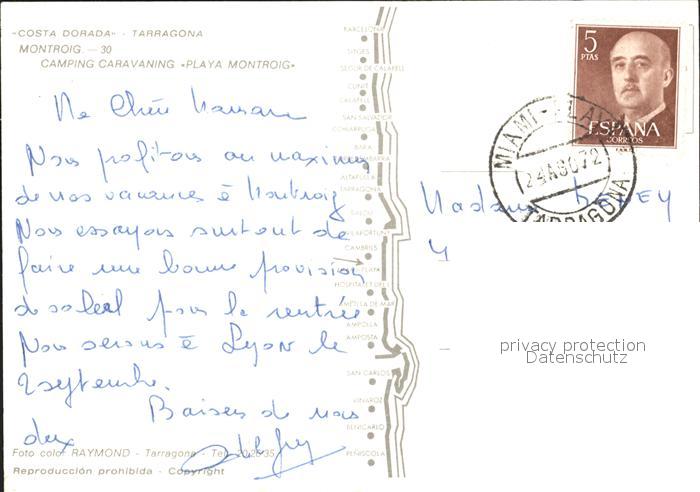 «COSTA DORADA» - TARRAGONA
MONTROIG. — 30
CAMPING CARAVANING «PLAYA MONTROIG»
Ma Chère Maman
Nous profitons au maximum
de nos vacances à Montroig
Nous essayons surtout de
faire une bonne provision
de soleil pour la rentrée
Nous serons à Lyon le
2 septembre.
Baisers de nous
deux
Foto color RAYMOND - Tarragona - Tel. 20 26 35
Reproducción prohibida - Copyright
BARCELONA
SITGES
SEGUR DE CALAFELL
CUNIT
CALAFELL
SAN SALVADOR
BARA
TARRAGONA
SALOU
CAMBRILS
PLAYA
AMETLLA DE MAR
AMPOLLA
AMPOSTA
SAN CARLOS
VINAROZ
BENICARLO
PEÑISCOLA
5
PTAS
ESPAÑA
CORREOS
MIAMI-PLAYA
24 AGO 72
TARRAGONA
Madame
4
privacy protection
Datenschutz